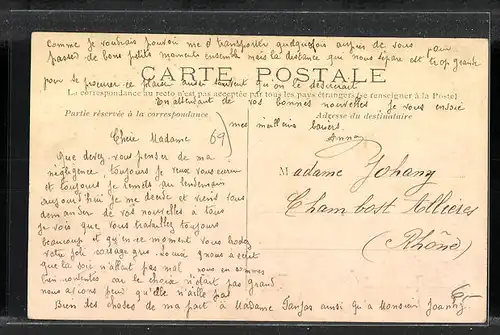 Comme je voudrais pouvoir me transporter quelquefois auprès de vous pour
passer de bons petits moments ensemble mais la distance qui nous sépare est trop grande
pour se procurer ce plaisir aussi souvent qu'on le désirerait
CARTE POSTALE
La correspondance au recto n'est pas acceptée par tous les pays étrangers (se renseigner à la Poste)
En attendant de vos bonnes nouvelles je vous envoie
Partie réservée à la correspondance
Adresse du destinataire
mes meilleurs baisers.
Chère Madame
69
Que devez vous penser de ma
négligence, toujours je veux vous écrire
et toujours je remets au lendemain
aujourd'hui je me décide et viens vous
demander de vos nouvelles à tous
je vois que vous travaillez toujours
beaucoup et qu'en ce moment vous brodez
votre joli corsage gris. Louis nous a écrit
que la soie n'allait pas mal nous en sommes
bien contentes car le choix n'était pas grand
nous avions peur qu'elle n'aille pas
Bien des choses de ma part à Madame ainsi qu'à Monsieur Joanny
Madame Johany
Chambost Allières
(Rhône)